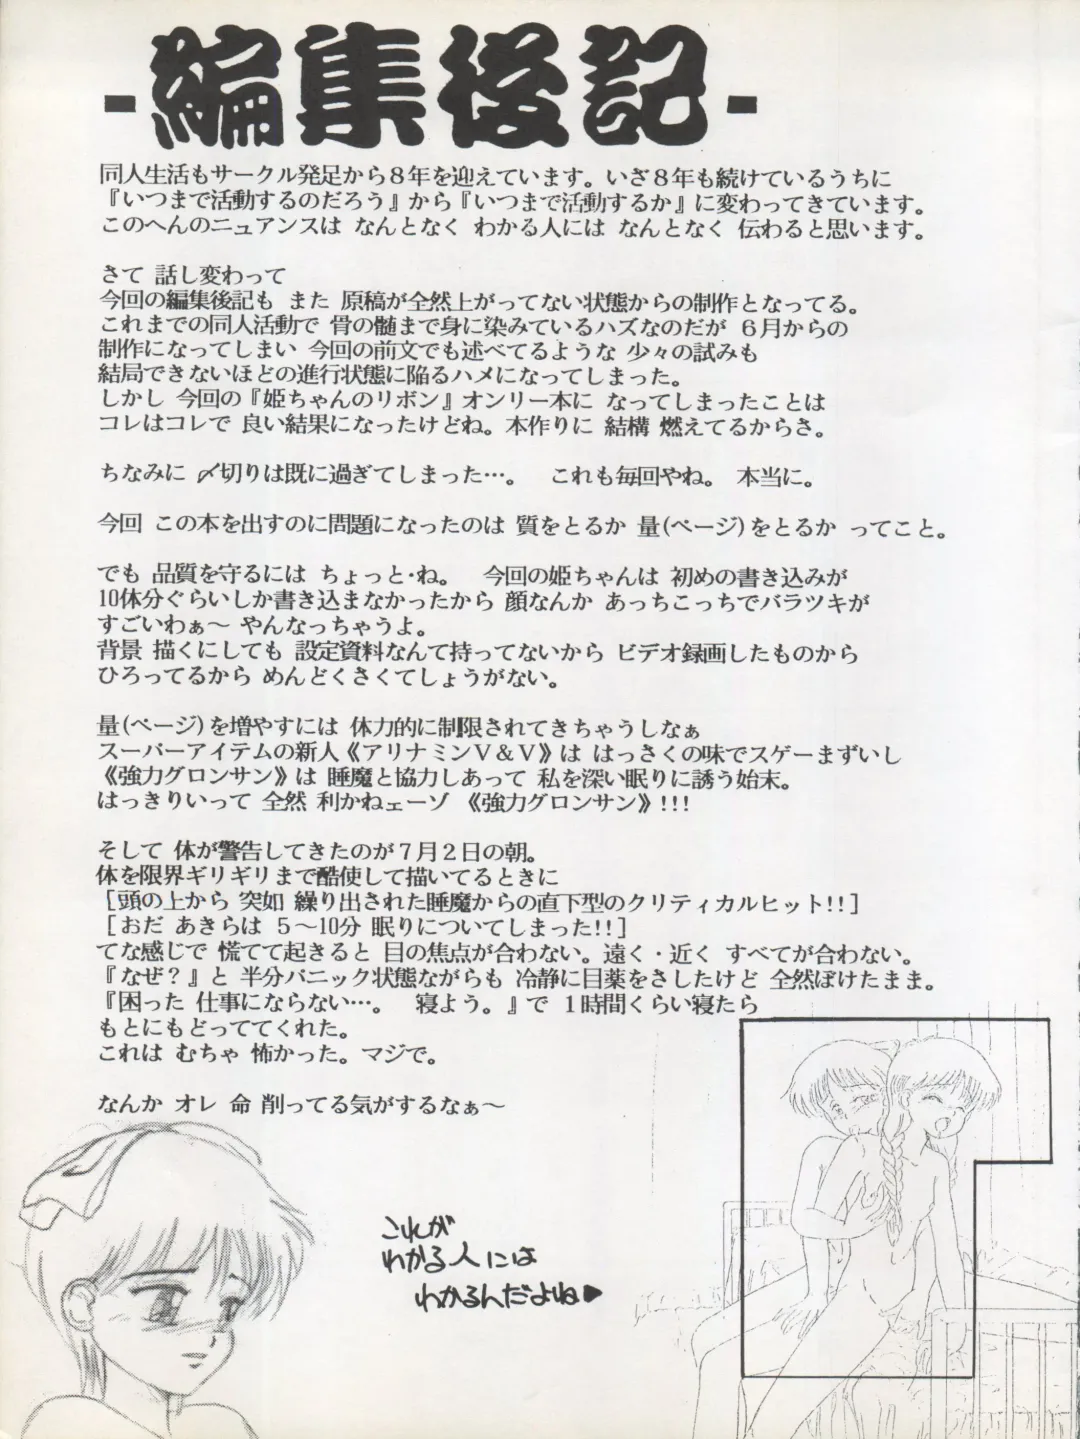 -編集後記-
同人生活もサークル発足から8年を迎えています。いざ8年も続けているうちに
『いつまで活動するのだろう』から『いつまで活動するか』に変わってきています。
このへんのニュアンスは なんとなく わかる人には なんとなく 伝わると思います。
さて 話し変わって
今回の編集後記も また 原稿が全然上がってない状態からの制作となってる。
これまでの同人活動で 骨の髄まで身に染みているハズなのだが 6月からの
制作になってしまい 今回の前文でも述べてるような 少々の試みも
結局できないほどの進行状態に陥るハメになってしまった。
しかし 今回の『姫ちゃんのリボン』オンリー本に なってしまったことは
コレはコレで 良い結果になったけどね。本作りに 結構 燃えてるからさ。
ちなみに 〆切りは既に過ぎてしまった…。 これも毎回やね。 本当に。
今回 この本を出すのに問題になったのは 質をとるか 量(ページ)をとるか ってこと。
でも 品質を守るには ちょっと・ね。 今回の姫ちゃんは 初めの書き込みが
10体分ぐらいしか書き込まなかったから 顔なんか あっちこっちでバラツキが
すごいわぁ～ やんなっちゃうよ。
背景 描くにしても 設定資料なんて持ってないから ビデオ録画したものから
ひろってるから めんどくさくてしょうがない。
量(ページ)を増やすには 体力的に制限されてきちゃうしなぁ
スーパーアイテムの新人《アリナミンV&V》は はっさくの味でスゲーまずいし
《強力グロンサン》は 睡魔と協力しあって 私を深い眠りに誘う始末。
はっきりいって 全然 利かねェーゾ 《強力グロンサン》!!!
そして 体が警告してきたのが7月2日の朝。
体を限界ギリギリまで酷使して描いてるときに
[頭の上から 突如 繰り出された睡魔からの直下型のクリティカルヒット!!]
[おだ あきらは 5～10分 眠りについてしまった!!]
てな感じで 慌てて起きると 目の焦点が合わない。遠く・近く すべてが合わない。
『なぜ?』と 半分パニック状態ながらも 冷静に目薬をさしたけど 全然ぼけたまま。
『困った 仕事にならない…。 寝よう。』で 1時間くらい寝たら
もとにもどっててくれた。
これは むちゃ 怖かった。マジで。
なんか オレ 命 削ってる気がするなぁ～
これが
わかる人には
わかるんだよね♥